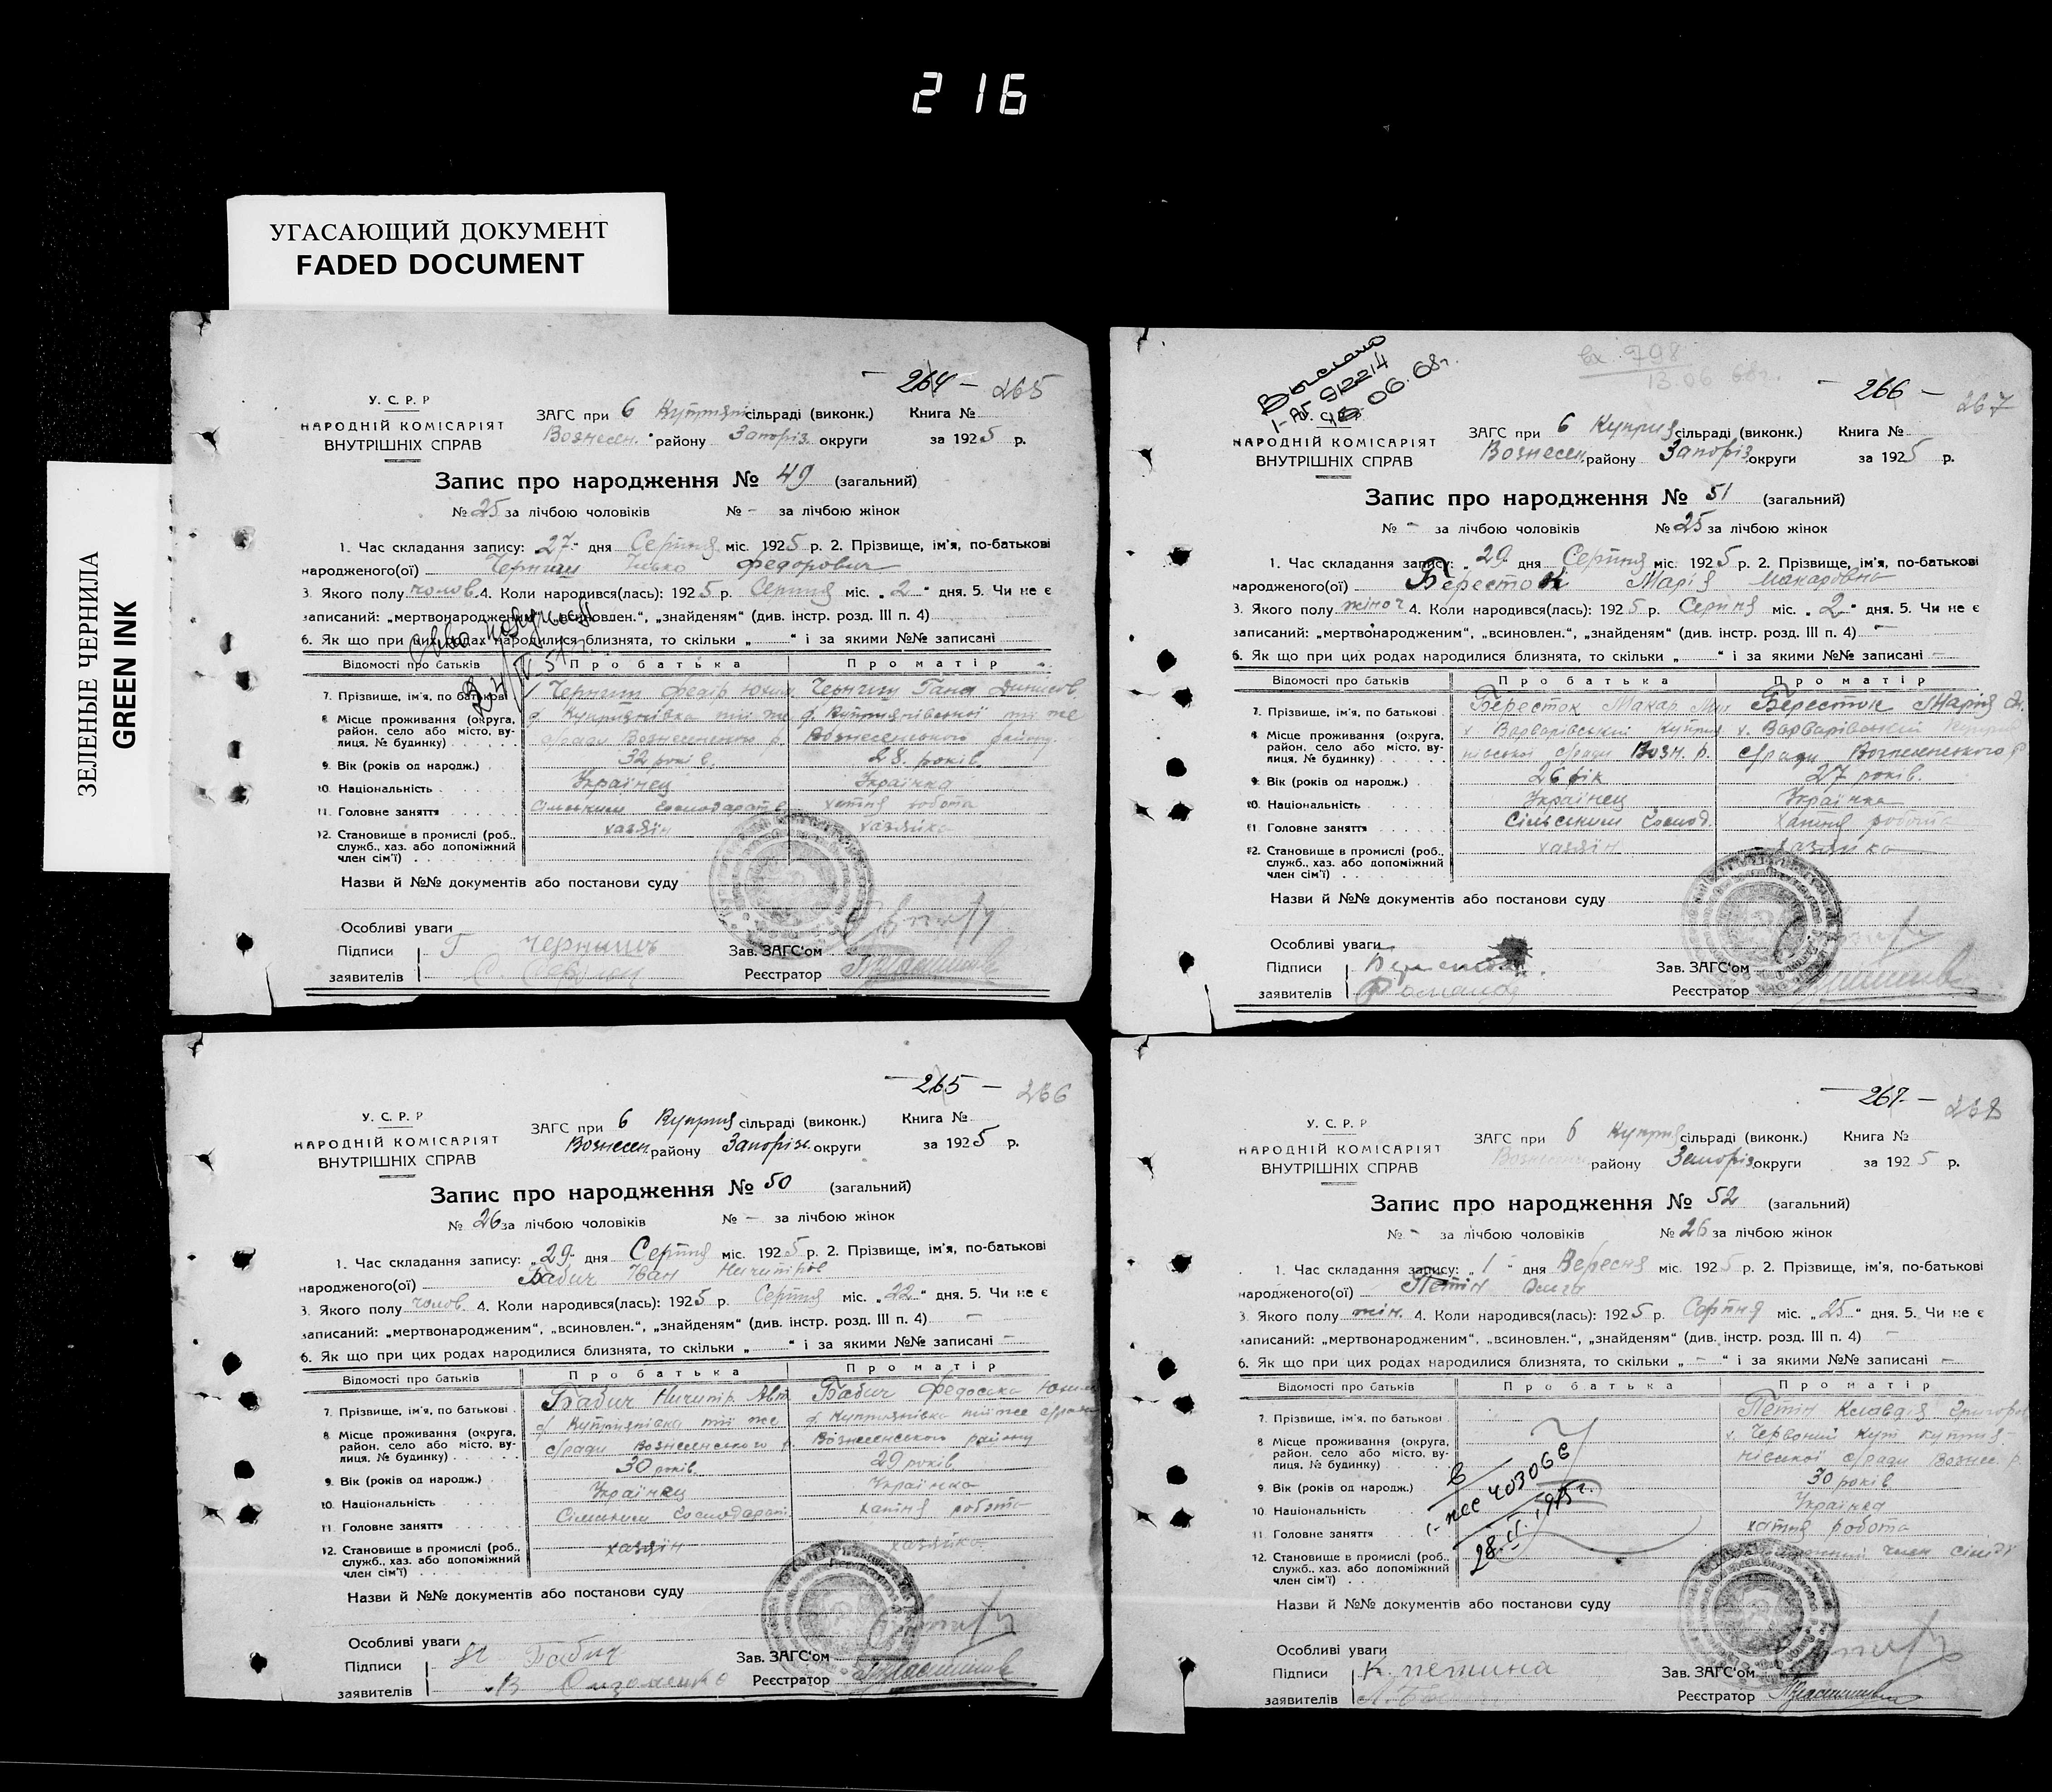 216
УГАСАЮЩИЙ ДОКУМЕНТ
FADED DOCUMENT
ЗЕЛЕНЫЕ ЧЕРНИЛА
GREEN INK
– 264 – 265
У. С. Р. Р
НАРОДНІЙ КОМІСАРІЯТ
ВНУТРІШНІХ СПРАВ
ЗАГС при 6 Куприян сільраді (виконк.) Книга №
Вознесен. району Запоріз. округи за 1925 р.
Запис про народження № 49 (загальний)
№ 25 за лічбою чоловіків № – за лічбою жінок
1. Час складання запису: „27“ дня Серпня міс. 1925 р. 2. Прізвище, ім'я, по-батькові
народженого(ої) Черниш Федорович
3. Якого полу чолов. 4. Коли народився(лась): 1925 р. Серпня міс. „2“ дня. 5. Чи не є
записаний: „мертвонародженим“, „всиновлен.“, „знайденям“ (див. інстр. розд. III п. 4)
6. Як що при цих родах народилися близнята, то скільки „ “ і за якими №№ записані
Відомості про батьків Про батька Про матір
7. Прізвище, ім'я, по батькові Черниш Федір Юхим Черниш Ганна Динисов.
8 Місце проживання (округа, район, село або місто, вулиця, № будинку) с. Куприянівка тії же сради Вознесенського р. с. Куприянівської тії же Вознесенського району
9. Вік (років од народж.) 32 років. 28. років.
10. Національність Українец Українка
11. Головне заняття Сільським Господарств. хатня робота
12. Становище в промислі (роб., служб., хаз. або допоміжний член сім'ї) хазяїн хазяйка
Назви й №№ документів або постанови суду
Особливі уваги
Підписи Г Чернишь Зав. ЗАГС'ом
заявителів Реєстратор
– 265 – 266
У. С. Р. Р
НАРОДНІЙ КОМІСАРІЯТ
ВНУТРІШНІХ СПРАВ
ЗАГС при 6 Куприя сільраді (виконк.) Книга №
Вознесен. району Запоріз. округи за 1925 р.
Запис про народження № 50 (загальний)
№ 26 за лічбою чоловіків № – за лічбою жінок
1. Час складання запису: „29“ дня Серпня міс. 1925 р. 2. Прізвище, ім'я, по-батькові
народженого(ої) Бабич Іван Ничипіров
3. Якого полу чолов. 4. Коли народився(лась): 1925 р. Серпня міс. „22“ дня. 5. Чи не є
записаний: „мертвонародженим“, „всиновлен.“, „знайденям“ (див. інстр. розд. III п. 4) –
6. Як що при цих родах народилися близнята, то скільки „ “ і за якими №№ записані –
Відомості про батьків Про батька Про матір
7. Прізвище, ім'я, по батькові Бабич Ничипір Авт Бабич Федоська Юхим
8 Місце проживання (округа, район, село або місто, вулиця, № будинку) с. Куприянівка тії же сради Вознесенського р. с. Куприянівка тії же сради Вознесенського району
9. Вік (років од народж.) 30 років. 29 років
10. Національність Українец Українка
11. Головне заняття Сільським Господарств. хатня робота
12. Становище в промислі (роб., служб., хаз. або допоміжний член сім'ї) хазяїн хазяйка
Назви й №№ документів або постанови суду
Особливі уваги
Підписи Н Бабич Зав. ЗАГС'ом
заявителів Реєстратор
Выслано
06. 68г.
вх. 798
13.06 68г.
– 266 – 267
НАРОДНІЙ КОМІСАРІЯТ
ВНУТРІШНІХ СПРАВ
ЗАГС при 6 Куприя сільраді (виконк.) Книга №
Вознесен. району Запоріз. округи за 1925 р.
Запис про народження № 51 (загальний)
№ – за лічбою чоловіків № 25 за лічбою жінок
1. Час складання запису: „29“ дня Серпня міс. 1925 р. 2. Прізвище, ім'я, по-батькові
народженого(ої) Бересток Марія Макаровна
3. Якого полу жіноч 4. Коли народився(лась): 1925 р. Серпня міс. „2“ дня. 5. Чи не є
записаний: „мертвонародженим“, „всиновлен.“, „знайденям“ (див. інстр. розд. III п. 4) –
6. Як що при цих родах народилися близнята, то скільки „ “ і за якими №№ записані –
Відомості про батьків Про батька Про матір
7. Прізвище, ім'я, по батькові Бересток Макар Бересток Марія
8 Місце проживання (округа, район, село або місто, вулиця, № будинку) х Варварівський Куприянівської сради Возн. р. х. Варварівський Куприн сради Вознесенського р
9. Вік (років од народж.) 26 рік 27 років.
10. Національність Українец Українка
11. Головне заняття Сільським Господ. хатня робота
12. Становище в промислі (роб., служб., хаз. або допоміжний член сім'ї) хазяїн хазяйка
Назви й №№ документів або постанови суду
Особливі уваги
Підписи Зав. ЗАГС'ом
заявителів Реєстратор
– 267 – 268
У. С. Р. Р
НАРОДНІЙ КОМІСАРІЯТ
ВНУТРІШНІХ СПРАВ
ЗАГС при 6 Куприя сільраді (виконк.) Книга №
Вознесен району Запоріз. округи за 1925 р.
Запис про народження № 52 (загальний)
№ – за лічбою чоловіків № 26 за лічбою жінок
1. Час складання запису: „1“ дня Вересня міс. 1925 р. 2. Прізвище, ім'я, по-батькові
народженого(ої) Петін
3. Якого полу жін. 4. Коли народився(лась): 1925 р. Серпня міс. „25“ дня. 5. Чи не є
записаний: „мертвонародженим“, „всиновлен.“, „знайденям“ (див. інстр. розд. III п. 4) –
6. Як що при цих родах народилися близнята, то скільки „ – “ і за якими №№ записані –
Відомості про батьків Про батька Про матір
7. Прізвище, ім'я, по батькові Петін Клавдія Григоров
8 Місце проживання (округа, район, село або місто, вулиця, № будинку) х. Червоний Кут Куприянівської сради Вознес. р.
9. Вік (років од народж.) 30 років
10. Національність Українка
11. Головне заняття хатня робота
12. Становище в промислі (роб., служб., хаз. або допоміжний член сім'ї) член сімьї
Назви й №№ документів або постанови суду
Особливі уваги
Підписи К. петина Зав. ЗАГС'ом
заявителів Реєстратор